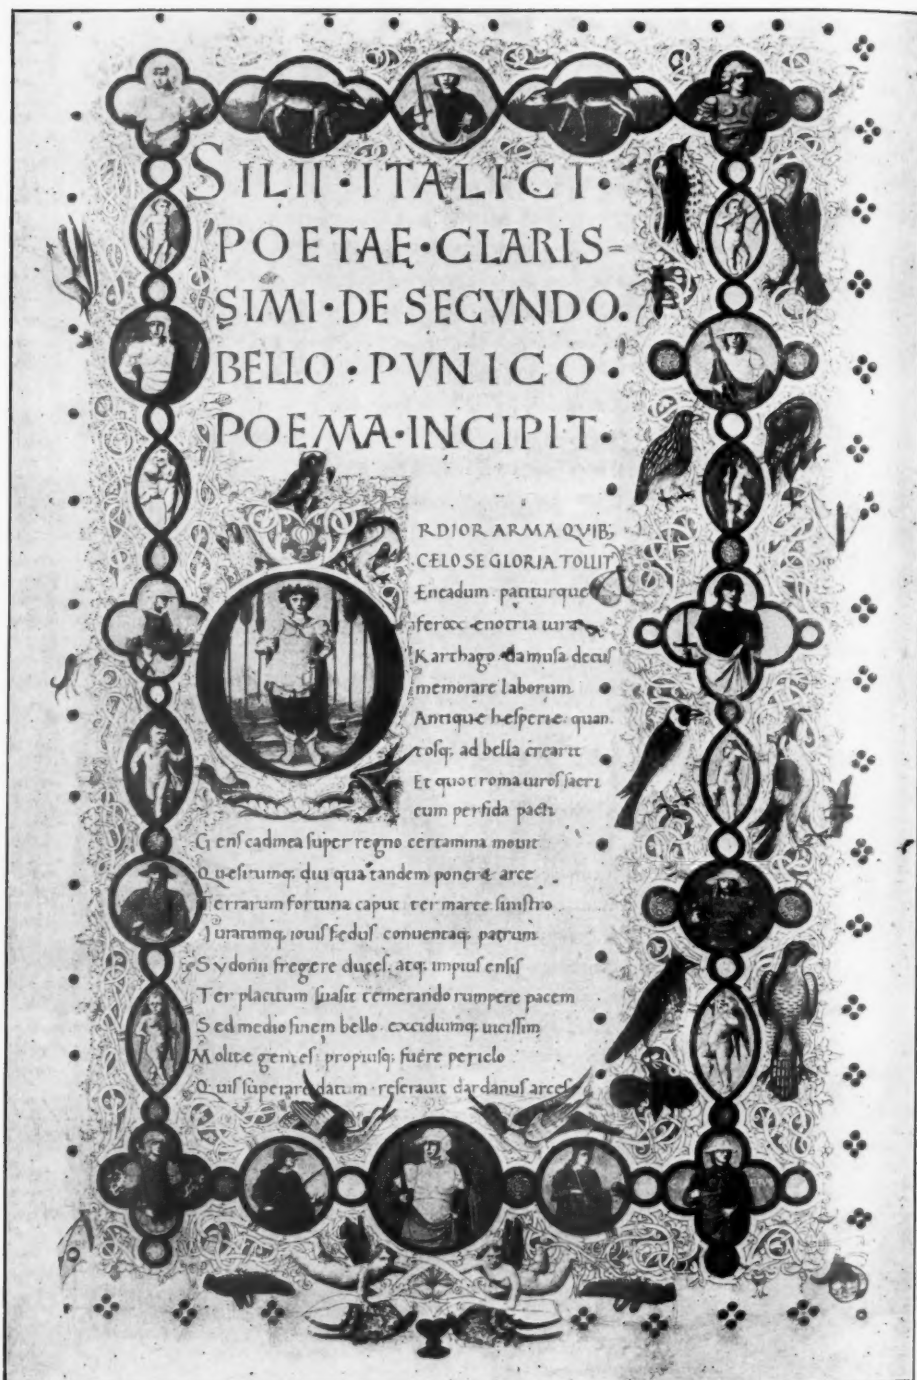 SILII · ITALICI ·
POETAE · CLARIS=
SIMI · DE SECVNDO.
BELLO · PVNICO ·
POEMA · INCIPIT ·
RDIOR ARMA QVIB;
CELO SE GLORIA TOLLIT
Eneadum patiturque
ferox enotria iura
Karthago da musa decus
memorare laborum
Antique hesperie quan
tosq; ad bella crearit
Et quot roma uiros sacri
cum perfida pacti
Gens cadmea super regno certamina mouit
Quesitumq; diu qua tandem poneret arce
Terrarum fortuna caput ter marte sinistro
Iuratumq; iouis fedus conuentaq; patrum
Sydonii fregere duces. atq; impius ensis
Ter placitum suasit temerando rumpere pacem
Sed medio finem bello excidiumq; uicissim
Molite gentes propiusq; fuere periclo
Quis superare datum reserauit dardanus arces